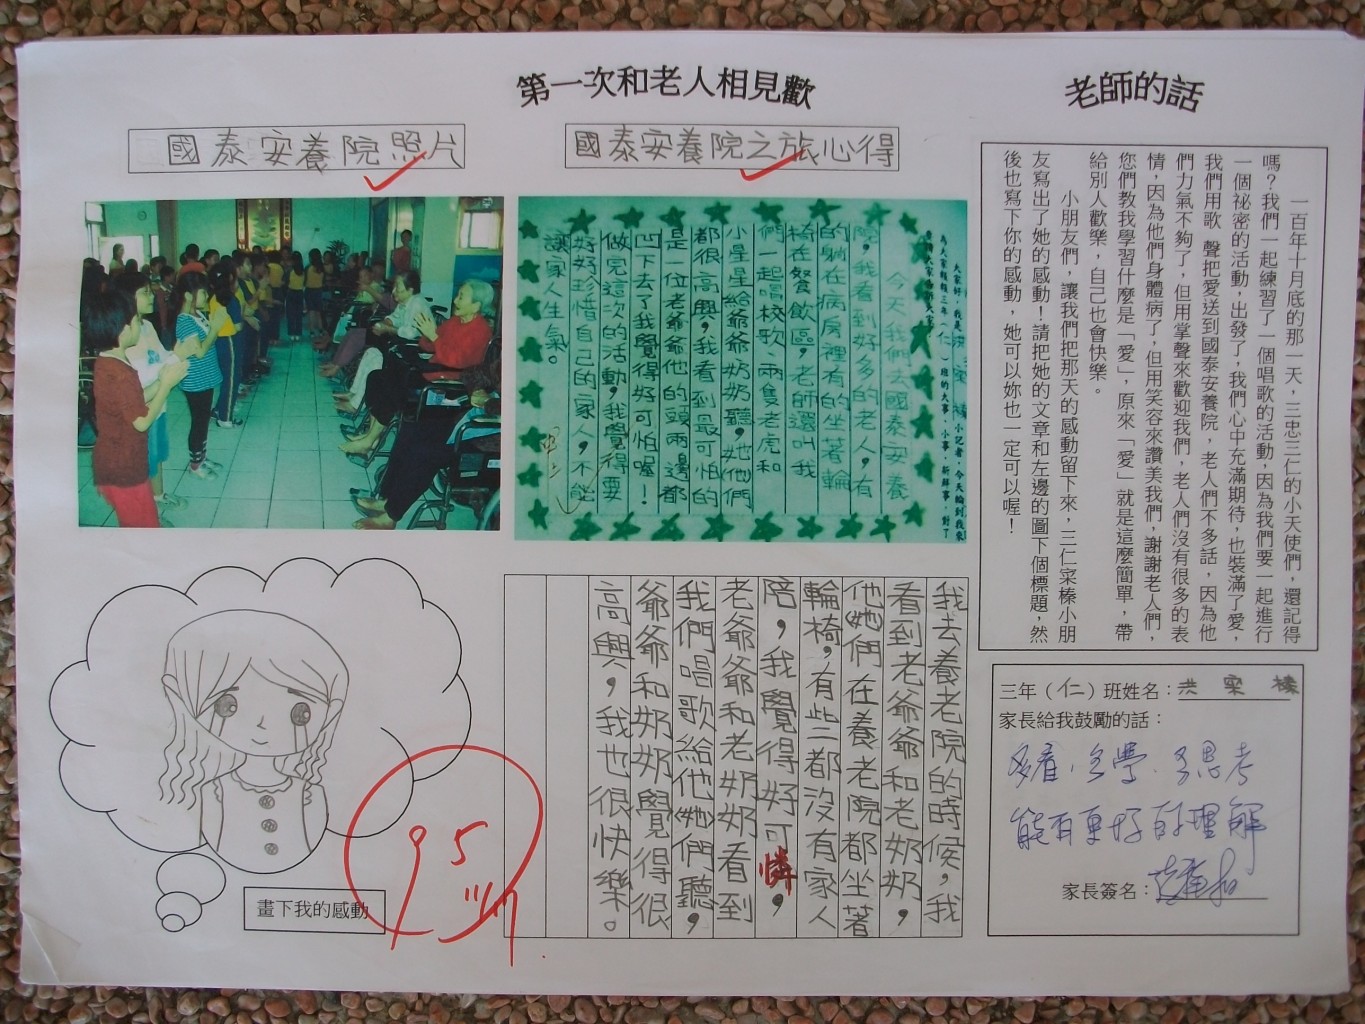 第一次和老人相見歡
老師的話
國泰安養院照片
國泰安養院之旅心得
一百年十月底的那一天，三忠三仁的小天使們，還記得
嗎？我們一起練習了一個唱歌的活動，因為我們要一起進行
一個祕密的活動，出發了，我們心中充滿期待，也裝滿了愛，
我們用歌 聲把愛送到國泰安養院，老人們不多話，因為他
們力氣不夠了，但用掌聲來歡迎我們，老人們沒有很多的表
情，因為他們身體病了，但用笑容來讚美我們，謝謝老人們，
您們教我學習什麼是「愛」，原來「愛」就是這麼簡單，帶
給別人歡樂，自己也會快樂。
小朋友們，讓我們把那天的感動留下來，三仁寀榛小朋
友寫出了她的感動！請把她的文章和左邊的圖下個標題，然
後也寫下你的感動，她可以妳也一定可以喔！
大家好，我是洪寀榛小記者，今天輪到我來
為大家報報三年（仁）班的大事、小事、新鮮事，對了
今天我們去國泰安養
院，我看到好多的老人，有
的躺在病房裡有的坐著輪
椅在餐飲區，老師還叫我
們一起唱校歌、兩隻老虎和
小星星給爺爺奶奶聽，她他們
都很高興，我看到最可怕的
是一位老爺爺他的頭兩邊都
凹下去了我覺得好可怕喔！
做完這次的活動，我覺得要
好好珍惜自己的家人，不能
讓家人生氣。
我去養老院的時候，我
看到老爺爺和老奶奶，
他(她)們在養老院都坐著
輪椅，有些都沒有家人
陪，我覺得好可憐，
老爺爺和老奶奶看到
我們唱歌給他(她)們聽，
爺爺和奶奶覺得很
高興，我也很快樂。
畫下我的感動
95
三年（仁）班姓名：洪寀榛
家長給我鼓勵的話：
多看、多學、多思考
能有更好的理解
家長簽名：